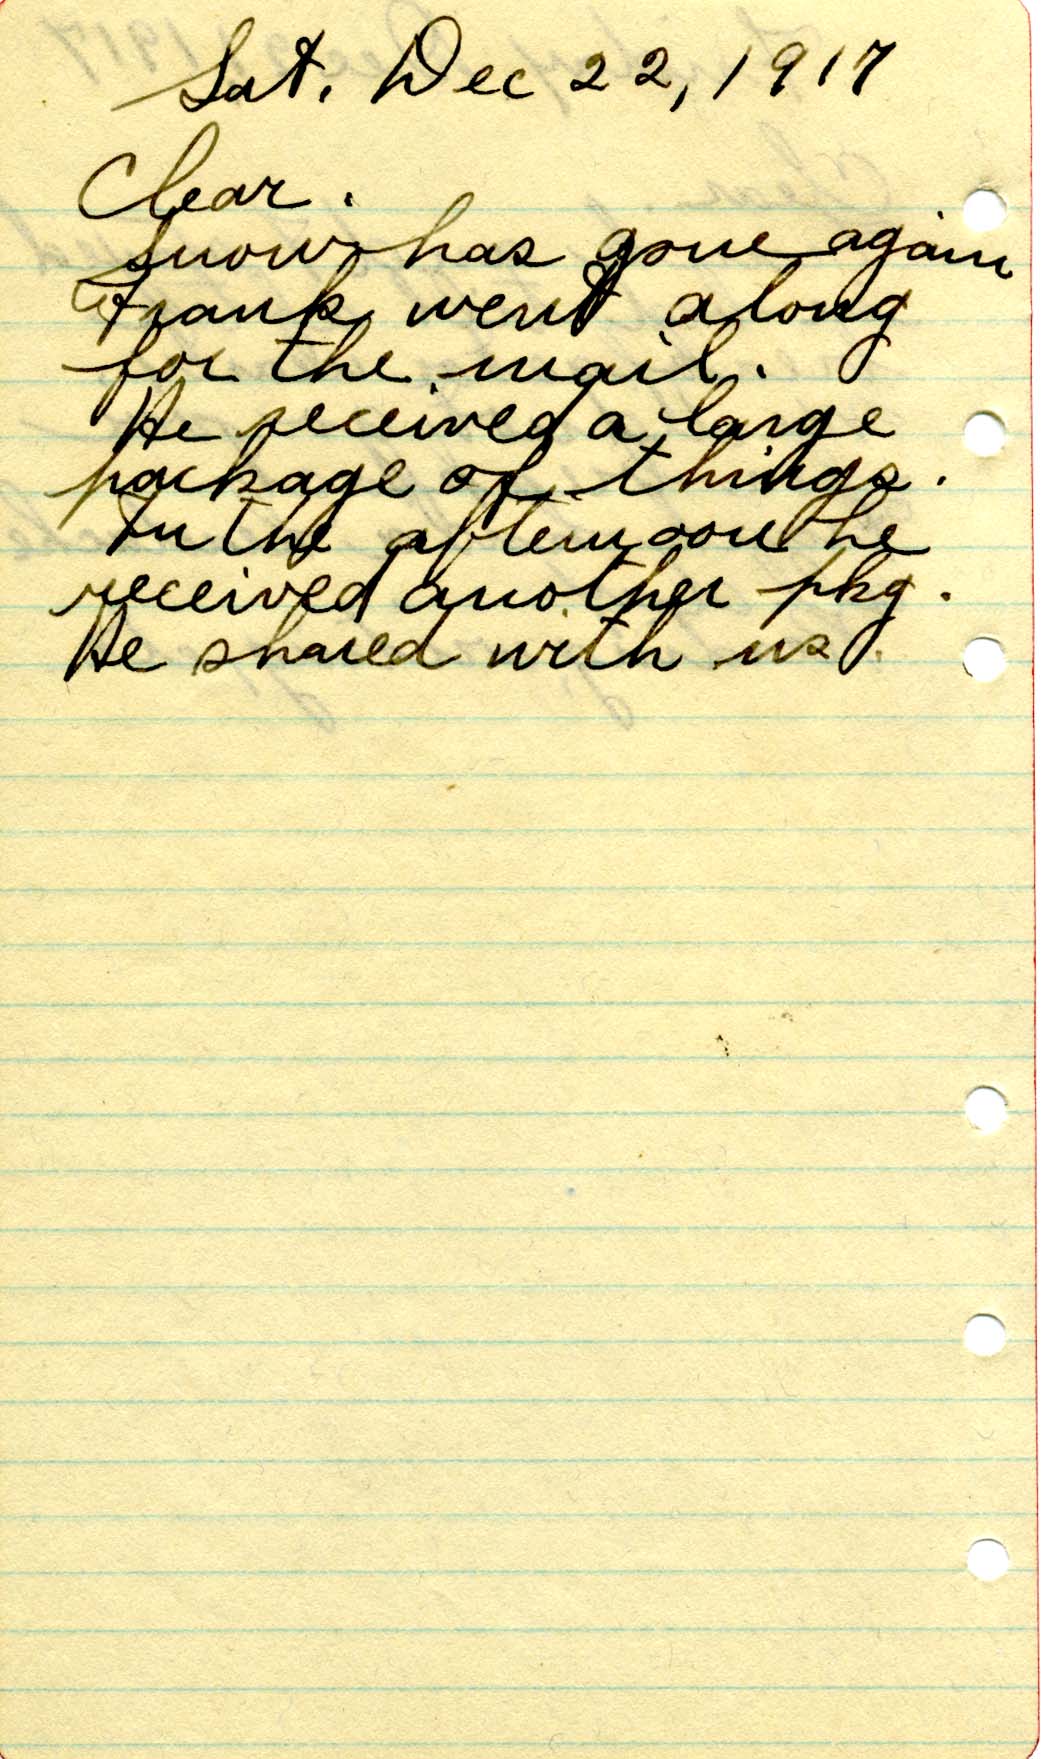 Sat. Dec 22, 1917
Clear.
Snow has gone again
Frank went along
for the mail.
He received a large
package of things.
In the afternoon he
received another pkg.
He shared with us.